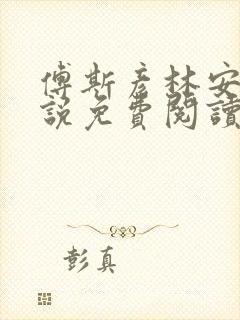 傅斯彥林安
說免費閱讀
彭真